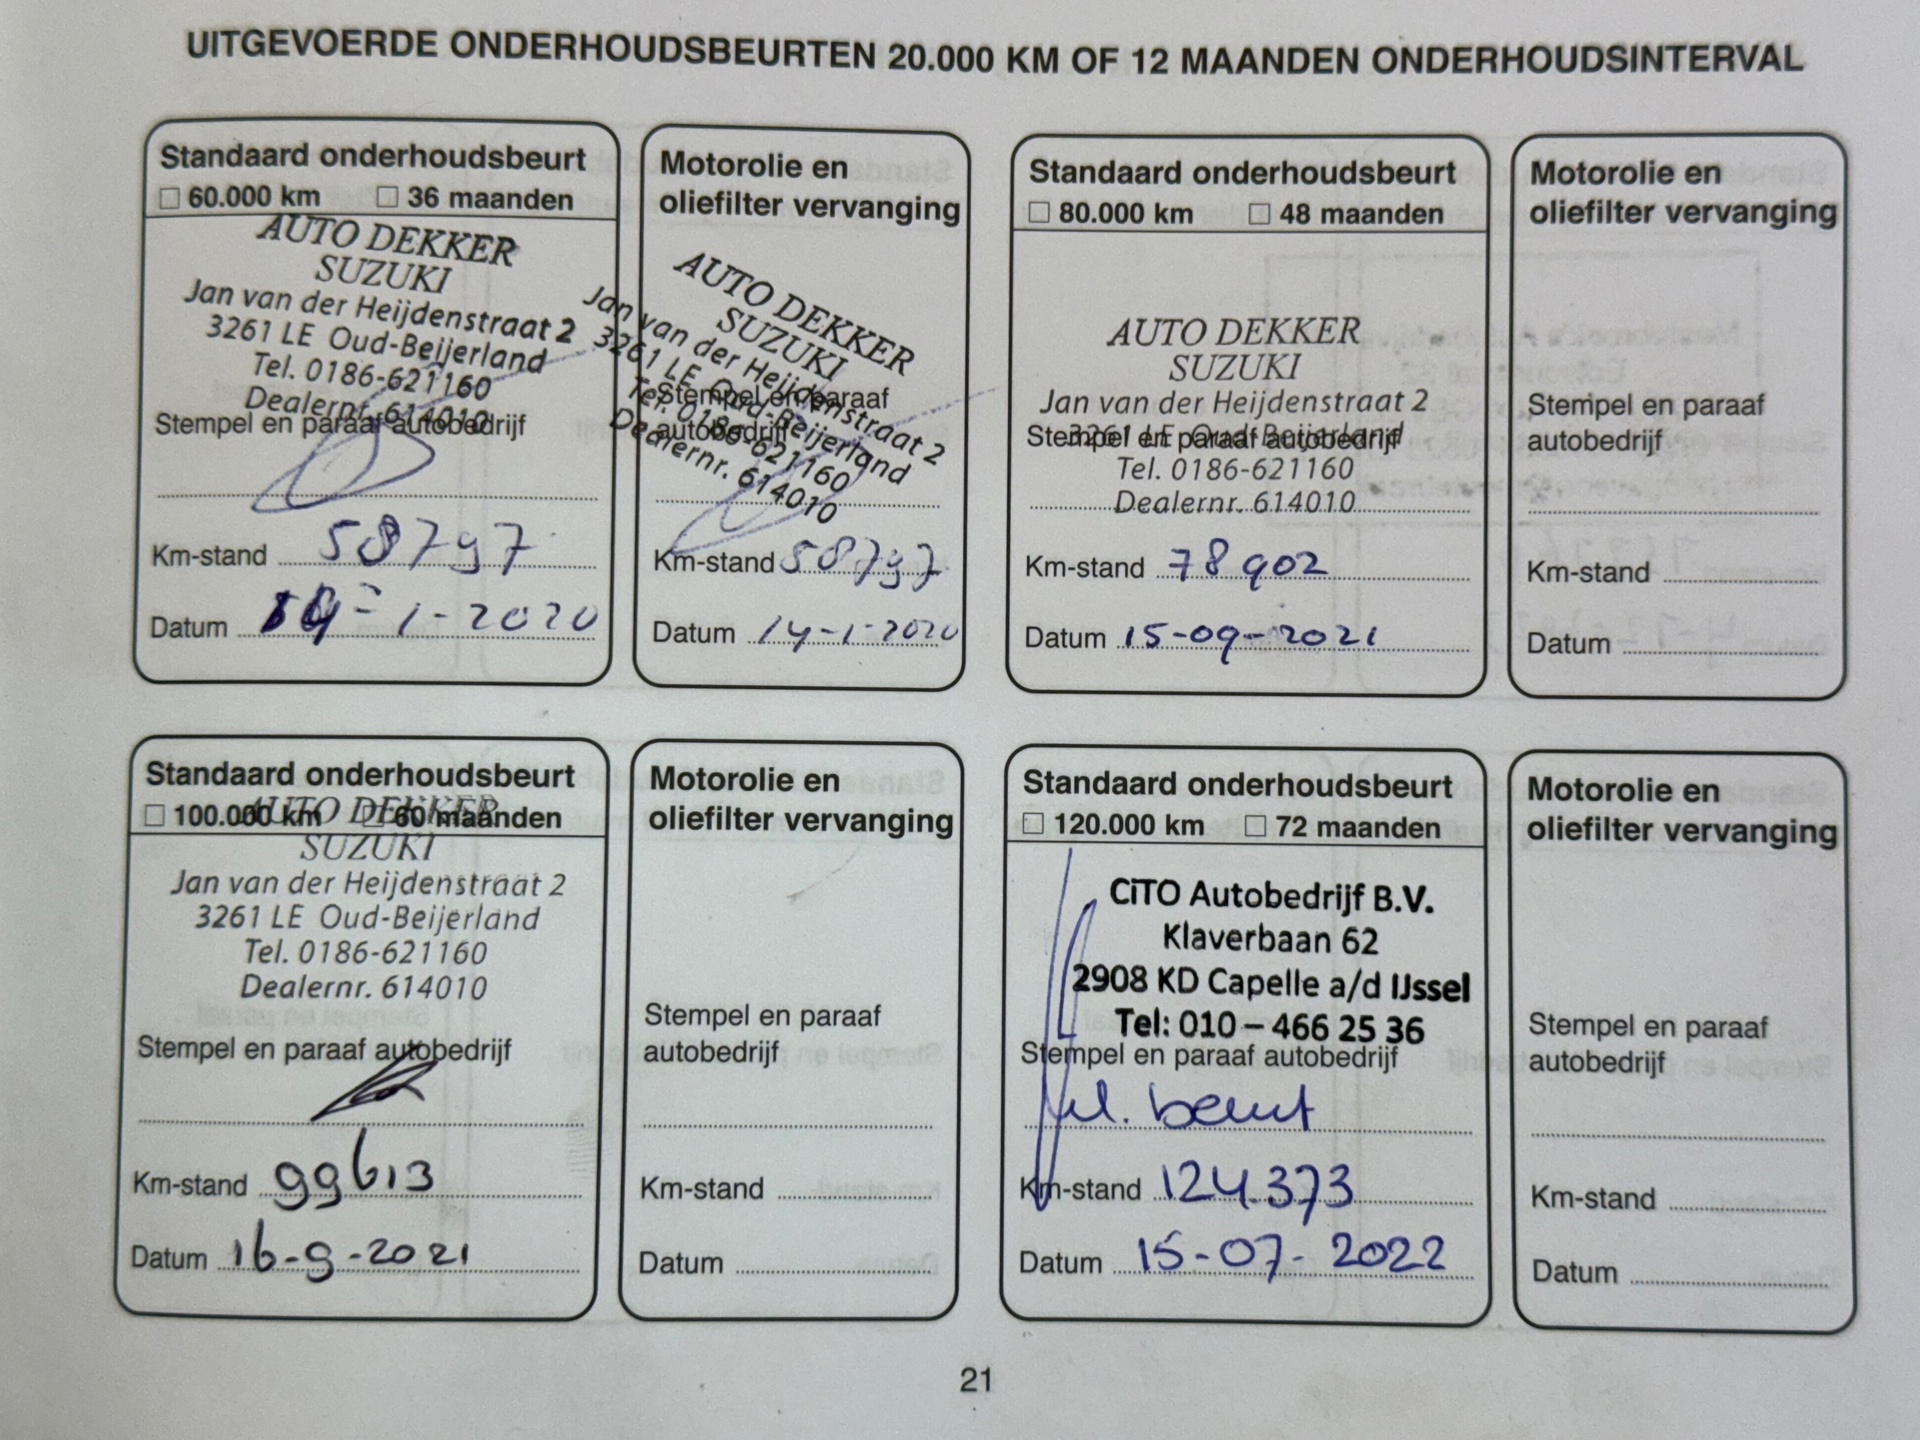 UITGEVOERDE ONDERHOUDSBEURTEN 20.000 KM OF 12 MAANDEN ONDERHOUDSINTERVAL
Standaard onderhoudsbeurt
60.000 km 36 maanden
AUTO DEKKER
SUZUKI
Jan van der Heijdenstraat 2
3261 LE Oud-Beijerland
Tel. 0186-621160
Dealernr. 614010
Stempel en paraaf autobedrijf
Km-stand 58797
Datum 14-1-2020
Motorolie en
oliefilter vervanging
AUTO DEKKER
SUZUKI
Jan van der Heijdenstraat 2
3261 LE Oud-Beijerland
Tel. 0186-621160
Dealernr. 614010
Stempel en paraaf
autobedrijf
Km-stand 58797
Datum 14-1-2020
Standaard onderhoudsbeurt
80.000 km 48 maanden
AUTO DEKKER
SUZUKI
Jan van der Heijdenstraat 2
3261 LE Oud-Beijerland
Stempel en paraaf autobedrijf
Tel. 0186-621160
Dealernr. 614010
Km-stand 78902
Datum 15-09-2021
Motorolie en
oliefilter vervanging
Stempel en paraaf
autobedrijf
Km-stand
Datum
Standaard onderhoudsbeurt
100.000 km 60 maanden
AUTO DEKKER
SUZUKI
Jan van der Heijdenstraat 2
3261 LE Oud-Beijerland
Tel. 0186-621160
Dealernr. 614010
Stempel en paraaf autobedrijf
Km-stand 99613
Datum 16-9-2021
Motorolie en
oliefilter vervanging
Stempel en paraaf
autobedrijf
Km-stand
Datum
Standaard onderhoudsbeurt
120.000 km 72 maanden
CiTO Autobedrijf B.V.
Klaverbaan 62
2908 KD Capelle a/d IJssel
Tel: 010 – 466 25 36
Stempel en paraaf autobedrijf
beurt
Km-stand 124.373
Datum 15-07-2022
Motorolie en
oliefilter vervanging
Stempel en paraaf
autobedrijf
Km-stand
Datum
21